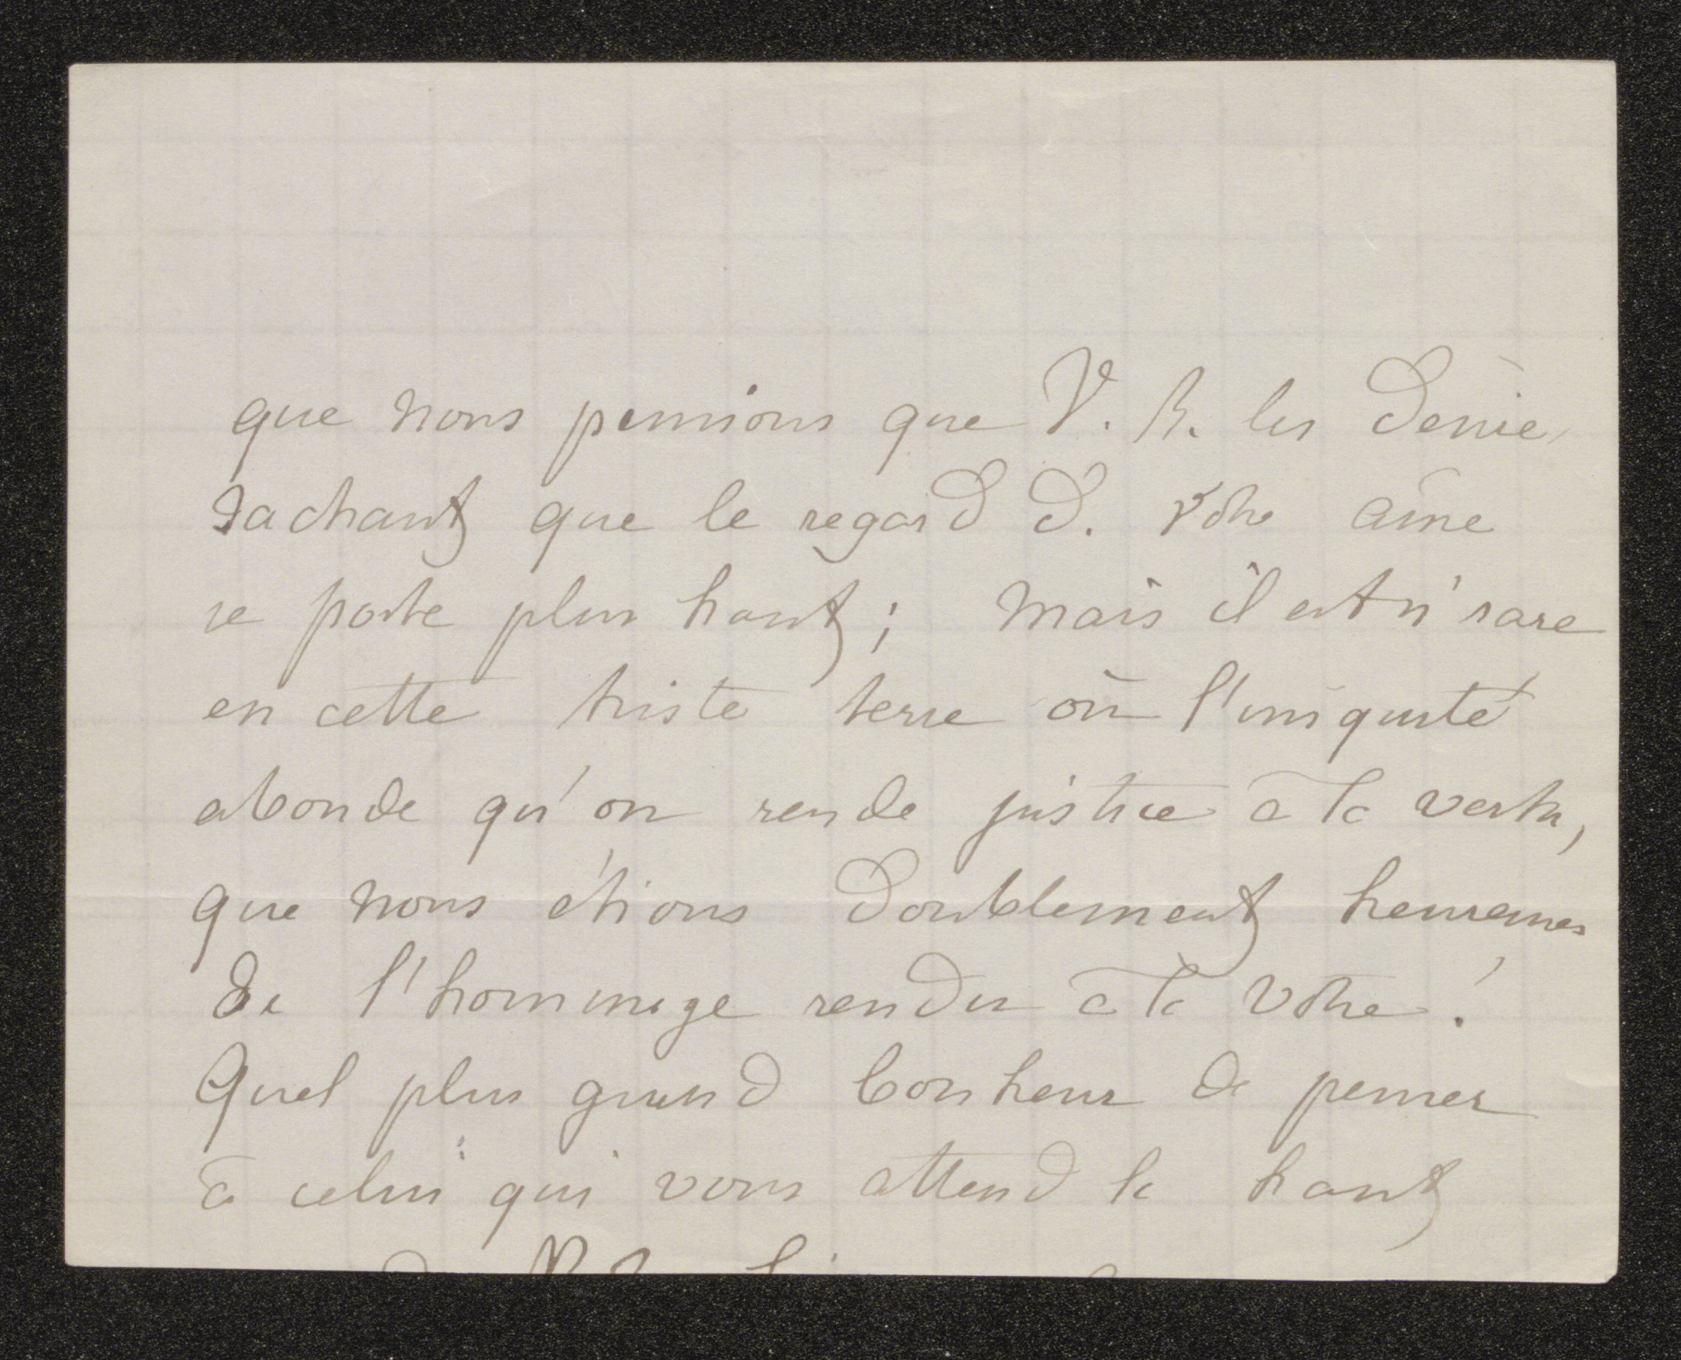 que nous pensions que V. R. les dénie,
sachant que le regard d. votre âme
se porte plus haut ; mais il est si rare
en cette triste terre où l'iniquité
abonde qu'on rende justice à la vertu,
que nous étions doublement heureuses
de l'hommage rendu à la vôtre !
Quel plus grand bonheur de penser
à celui qui vous attend là haut